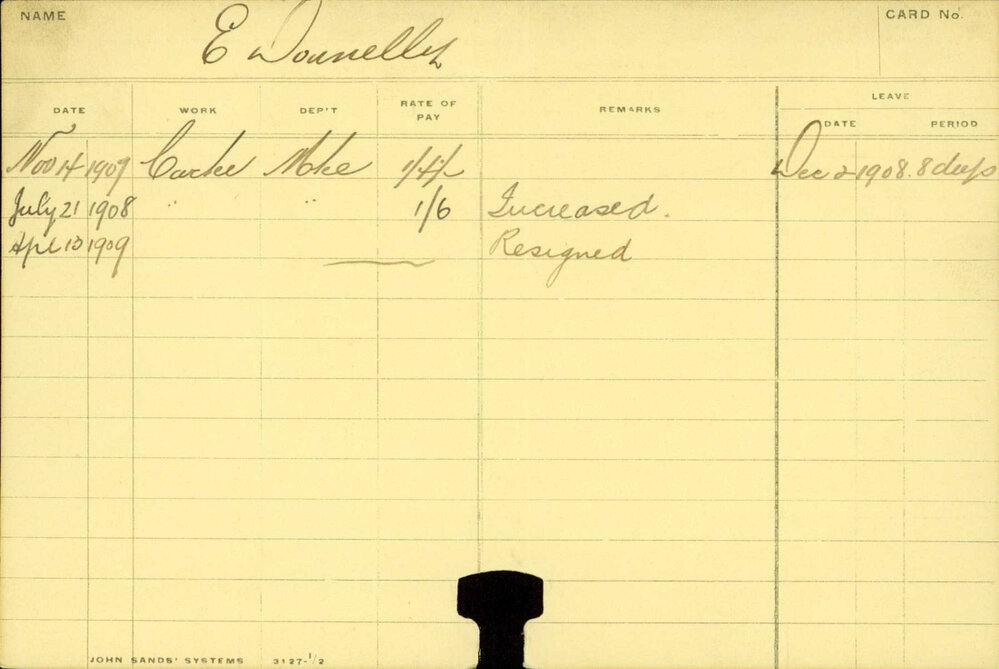 NAME
CARD No.
E Donnelly
DATE WORK DEP'T RATE OF PAY REMARKS LEAVE
DATE PERIOD
Nov 14 1907 1/4½ Dec 2 1908. 8 days
July 21 1908 " " 1/6 Increased.
Apl 13 1909 Resigned
JOHN SANDS' SYSTEMS 3127-1/2